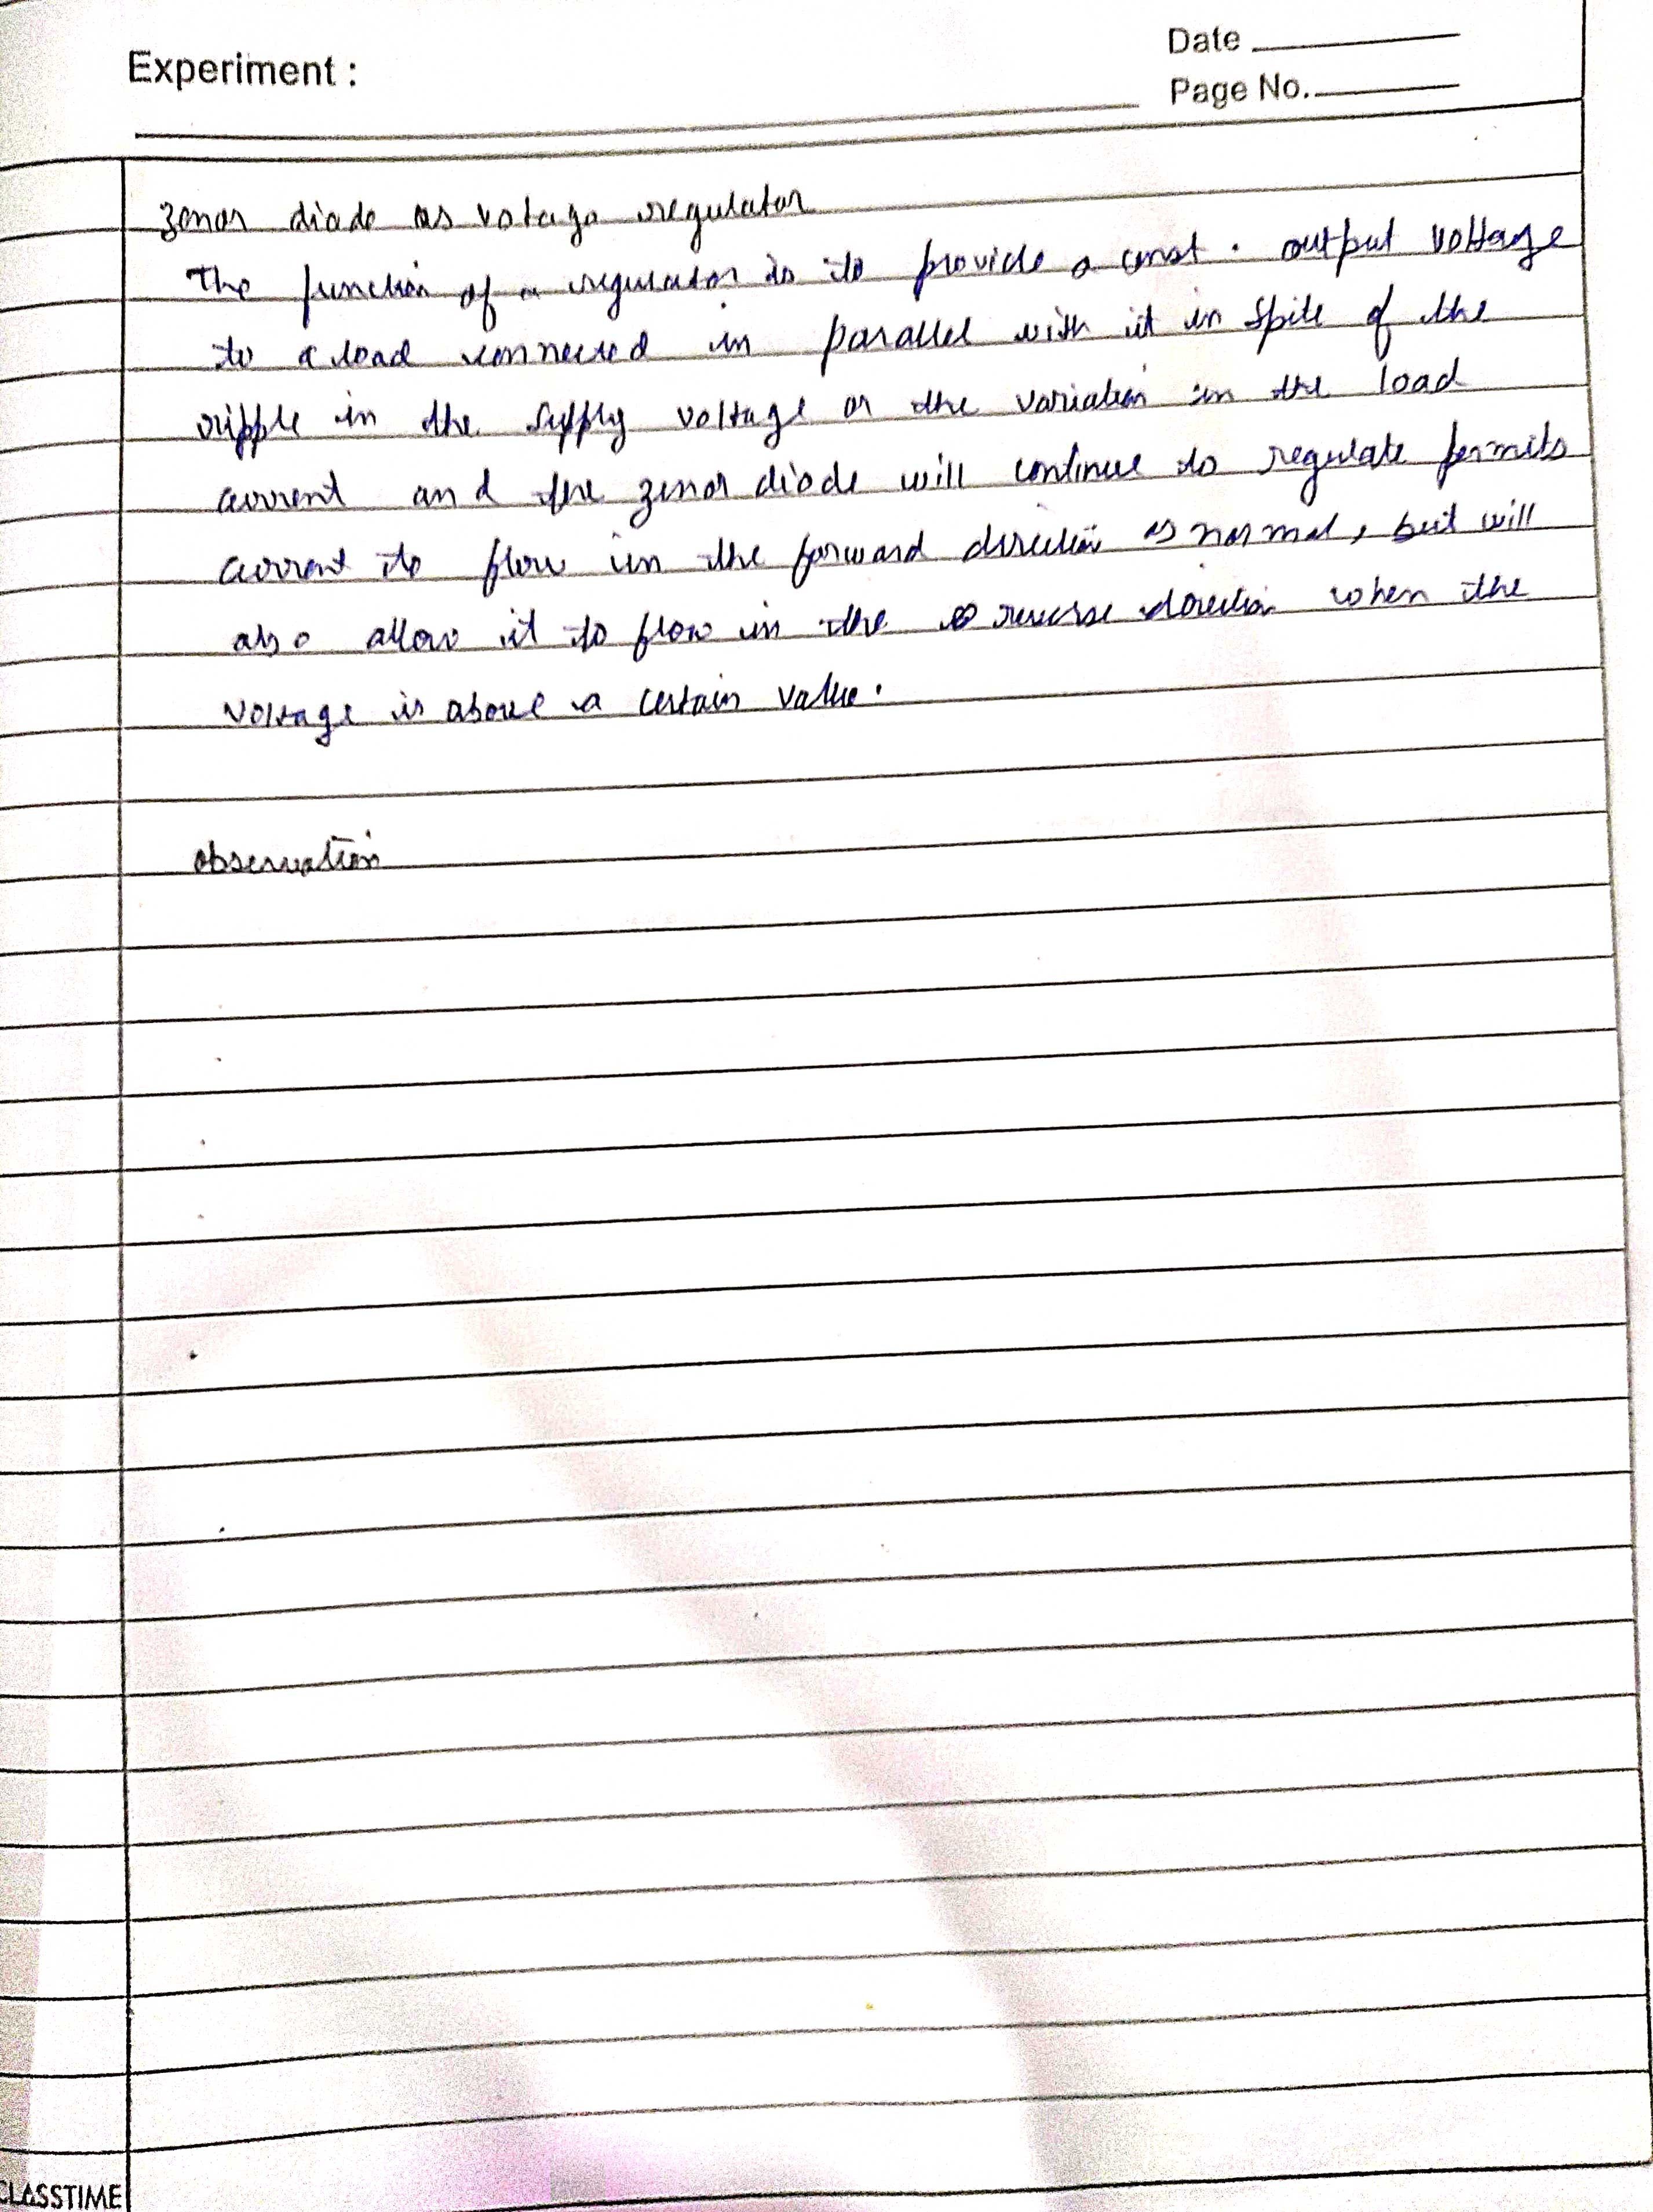 Experiment :
Date
Page No.
zenor diode as votage regulator
The function of a regulator is to provide a const. output voltage
to a load connected in parallel with it in spite of the
ripple in the supply voltage or the variation in the load
current and the zenor diode will continue to regulate permits
current to flow in the forward direction as normal, but will
also allow it to flow in the reverse direction when the
voltage is above a certain value.
observation
CLASSTIME